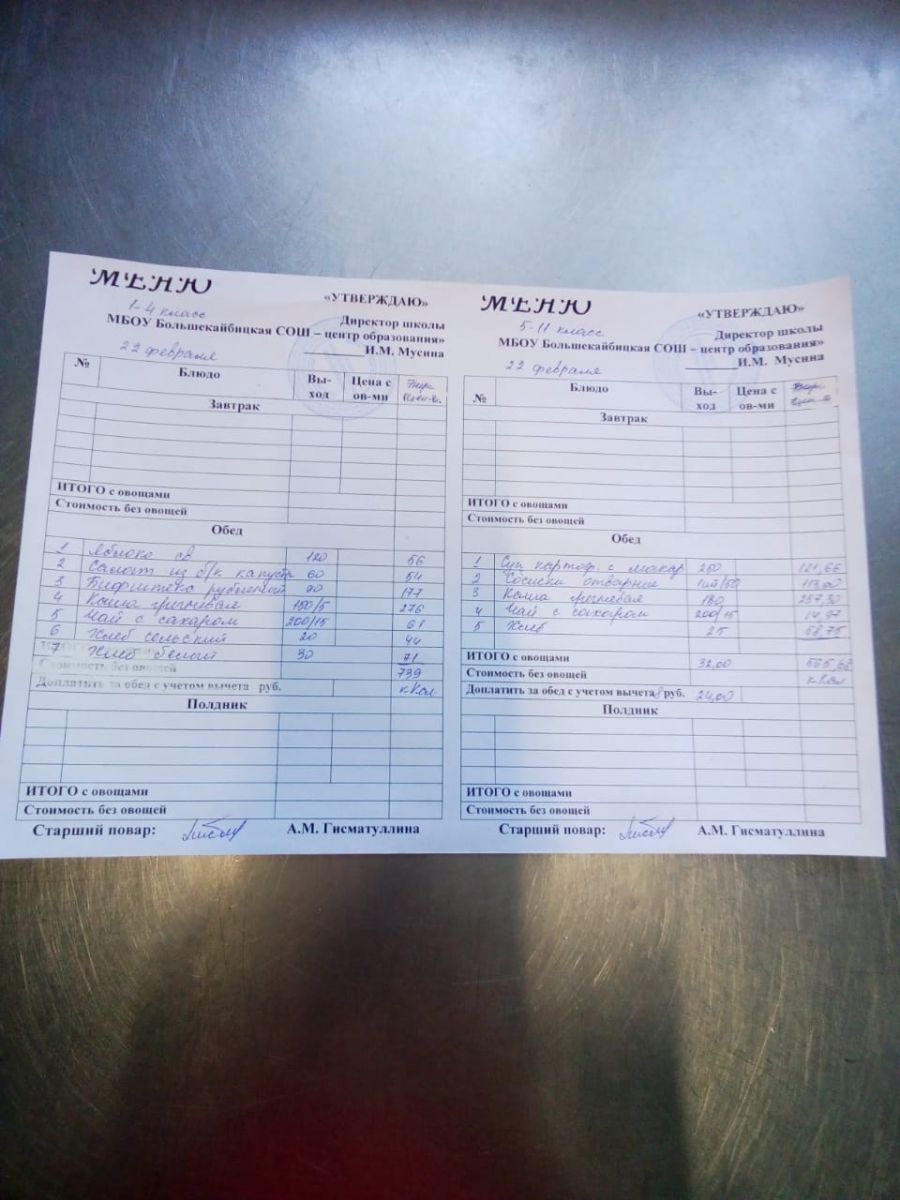 МЕНЮ
1-4 класс
«УТВЕРЖДАЮ»
Директор школы
МБОУ Большекайбицкая СОШ – центр образования»
И.М. Мусина
22 февраля
№ Блюдо Вы-ход Цена с ов-ми
Завтрак
ИТОГО с овощами
Стоимость без овощей
Обед
1 Яблоко св 120 56
2 Салат из б/к капусты 60 54
3 Бифштекс рубленный 90 177
4 Каша гречневая 150/5 276
5 Чай с сахаром 200/15 61
6 Хлеб сельский 20 44
7 Хлеб белый 30 71
Стоимость без овощей 739
Доплатить за обед с учетом вычета руб. кКал
Полдник
ИТОГО с овощами
Стоимость без овощей
Старший повар: А.М. Гисматуллина
МЕНЮ
5-11 класс
«УТВЕРЖДАЮ»
Директор школы
МБОУ Большекайбицкая СОШ – центр образования»
И.М. Мусина
22 февраля
№ Блюдо Вы-ход Цена с ов-ми
Завтрак
ИТОГО с овощами
Стоимость без овощей
Обед
1 Суп картоф. с макар 250 121,66
2 Сосиски отварные 113,00
3 Каша гречневая 180 257,30
4 Чай с сахаром 200/15 14,97
5 Хлеб 25 58,75
ИТОГО с овощами 32,00 565,68
Стоимость без овощей кКал
Доплатить за обед с учетом вычета руб. 24,00
Полдник
ИТОГО с овощами
Стоимость без овощей
Старший повар: А.М. Гисматуллина